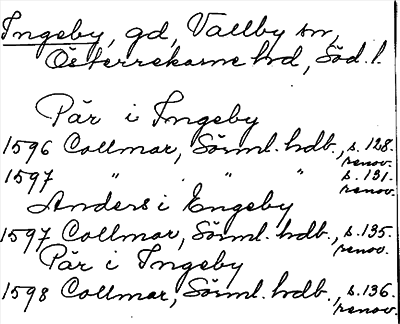 Ingeby, gd, Vallby sn,
Österrekarne hd, Söd. l.
Pär i Ingeby
1596 Collmar, Sörml. hdb., s. 128.
renov.
1597 " " " s. 131.
renov.
Anders i Engeby
1597 Collmar, Sörml. hdb., s. 135.
renov.
Pär i Ingeby
1598 Collmar, Sörml. hdb., s. 136.
renov.